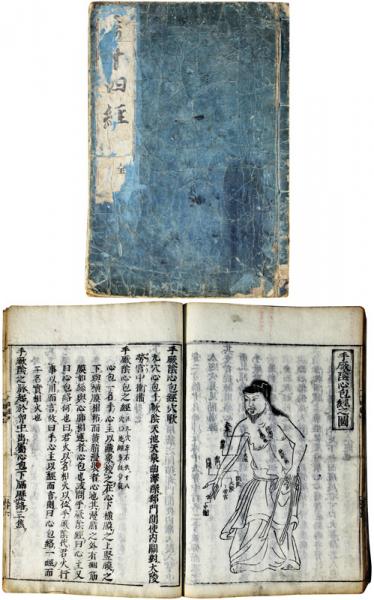 十四經
全
手厥陰心包經之圖
手厥陰心包經穴歌
九穴心包手厥陰天池天泉曲澤深郄門間使內關對大陵
勞宮中衝備
手厥陰心包之經
心包一名手心主以藏象校之在心下橫膜之上竪膜之
下與橫膜相粘而黃脂漫裹者心也其漫脂之外有細筋
膜如絲與心肺相連者心包也或問手厥陰經曰心主又
曰心包絡何也曰君火以名相火以位手厥陰代君火行
事以用而言故曰手心主以經而言則曰心包絡一經而
二名實相火也
手厥陰之脈起於胸中出屬心包下膈歷絡三焦